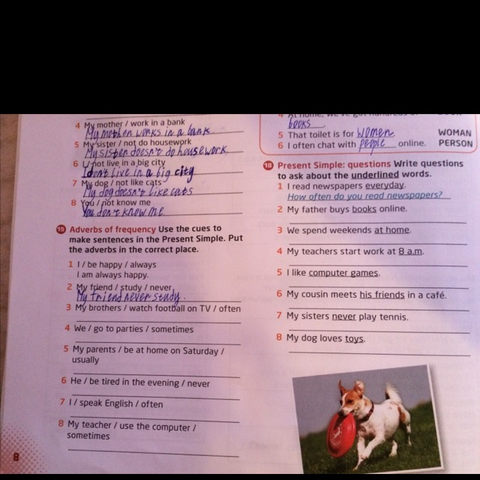 4 My mother / work in a bank
My mother works in a bank
5 My sister / not do housework
My sister doesn't do housework
6 I / not live in a big city
I don't live in a big city
7 My dog / not like cats
My dog doesn't like cats
8 You / not know me
You don't know me
15 Adverbs of frequency Use the cues to
make sentences in the Present Simple. Put
the adverbs in the correct place.
1 I / be happy / always
I am always happy.
2 My friend / study / never
My friend never study.
3 My brothers / watch football on TV / often
4 We / go to parties / sometimes
5 My parents / be at home on Saturday /
usually
6 He / be tired in the evening / never
7 I / speak English / often
8 My teacher / use the computer /
sometimes
8
books
5 That toilet is for women WOMAN
6 I often chat with people online. PERSON
Present Simple: questions Write questions
to ask about the underlined words.
1 I read newspapers everyday.
How often do you read newspapers?
2 My father buys books online.
3 We spend weekends at home.
4 My teachers start work at 8 a.m.
5 I like computer games.
6 My cousin meets his friends in a café.
7 My sisters never play tennis.
8 My dog loves toys.